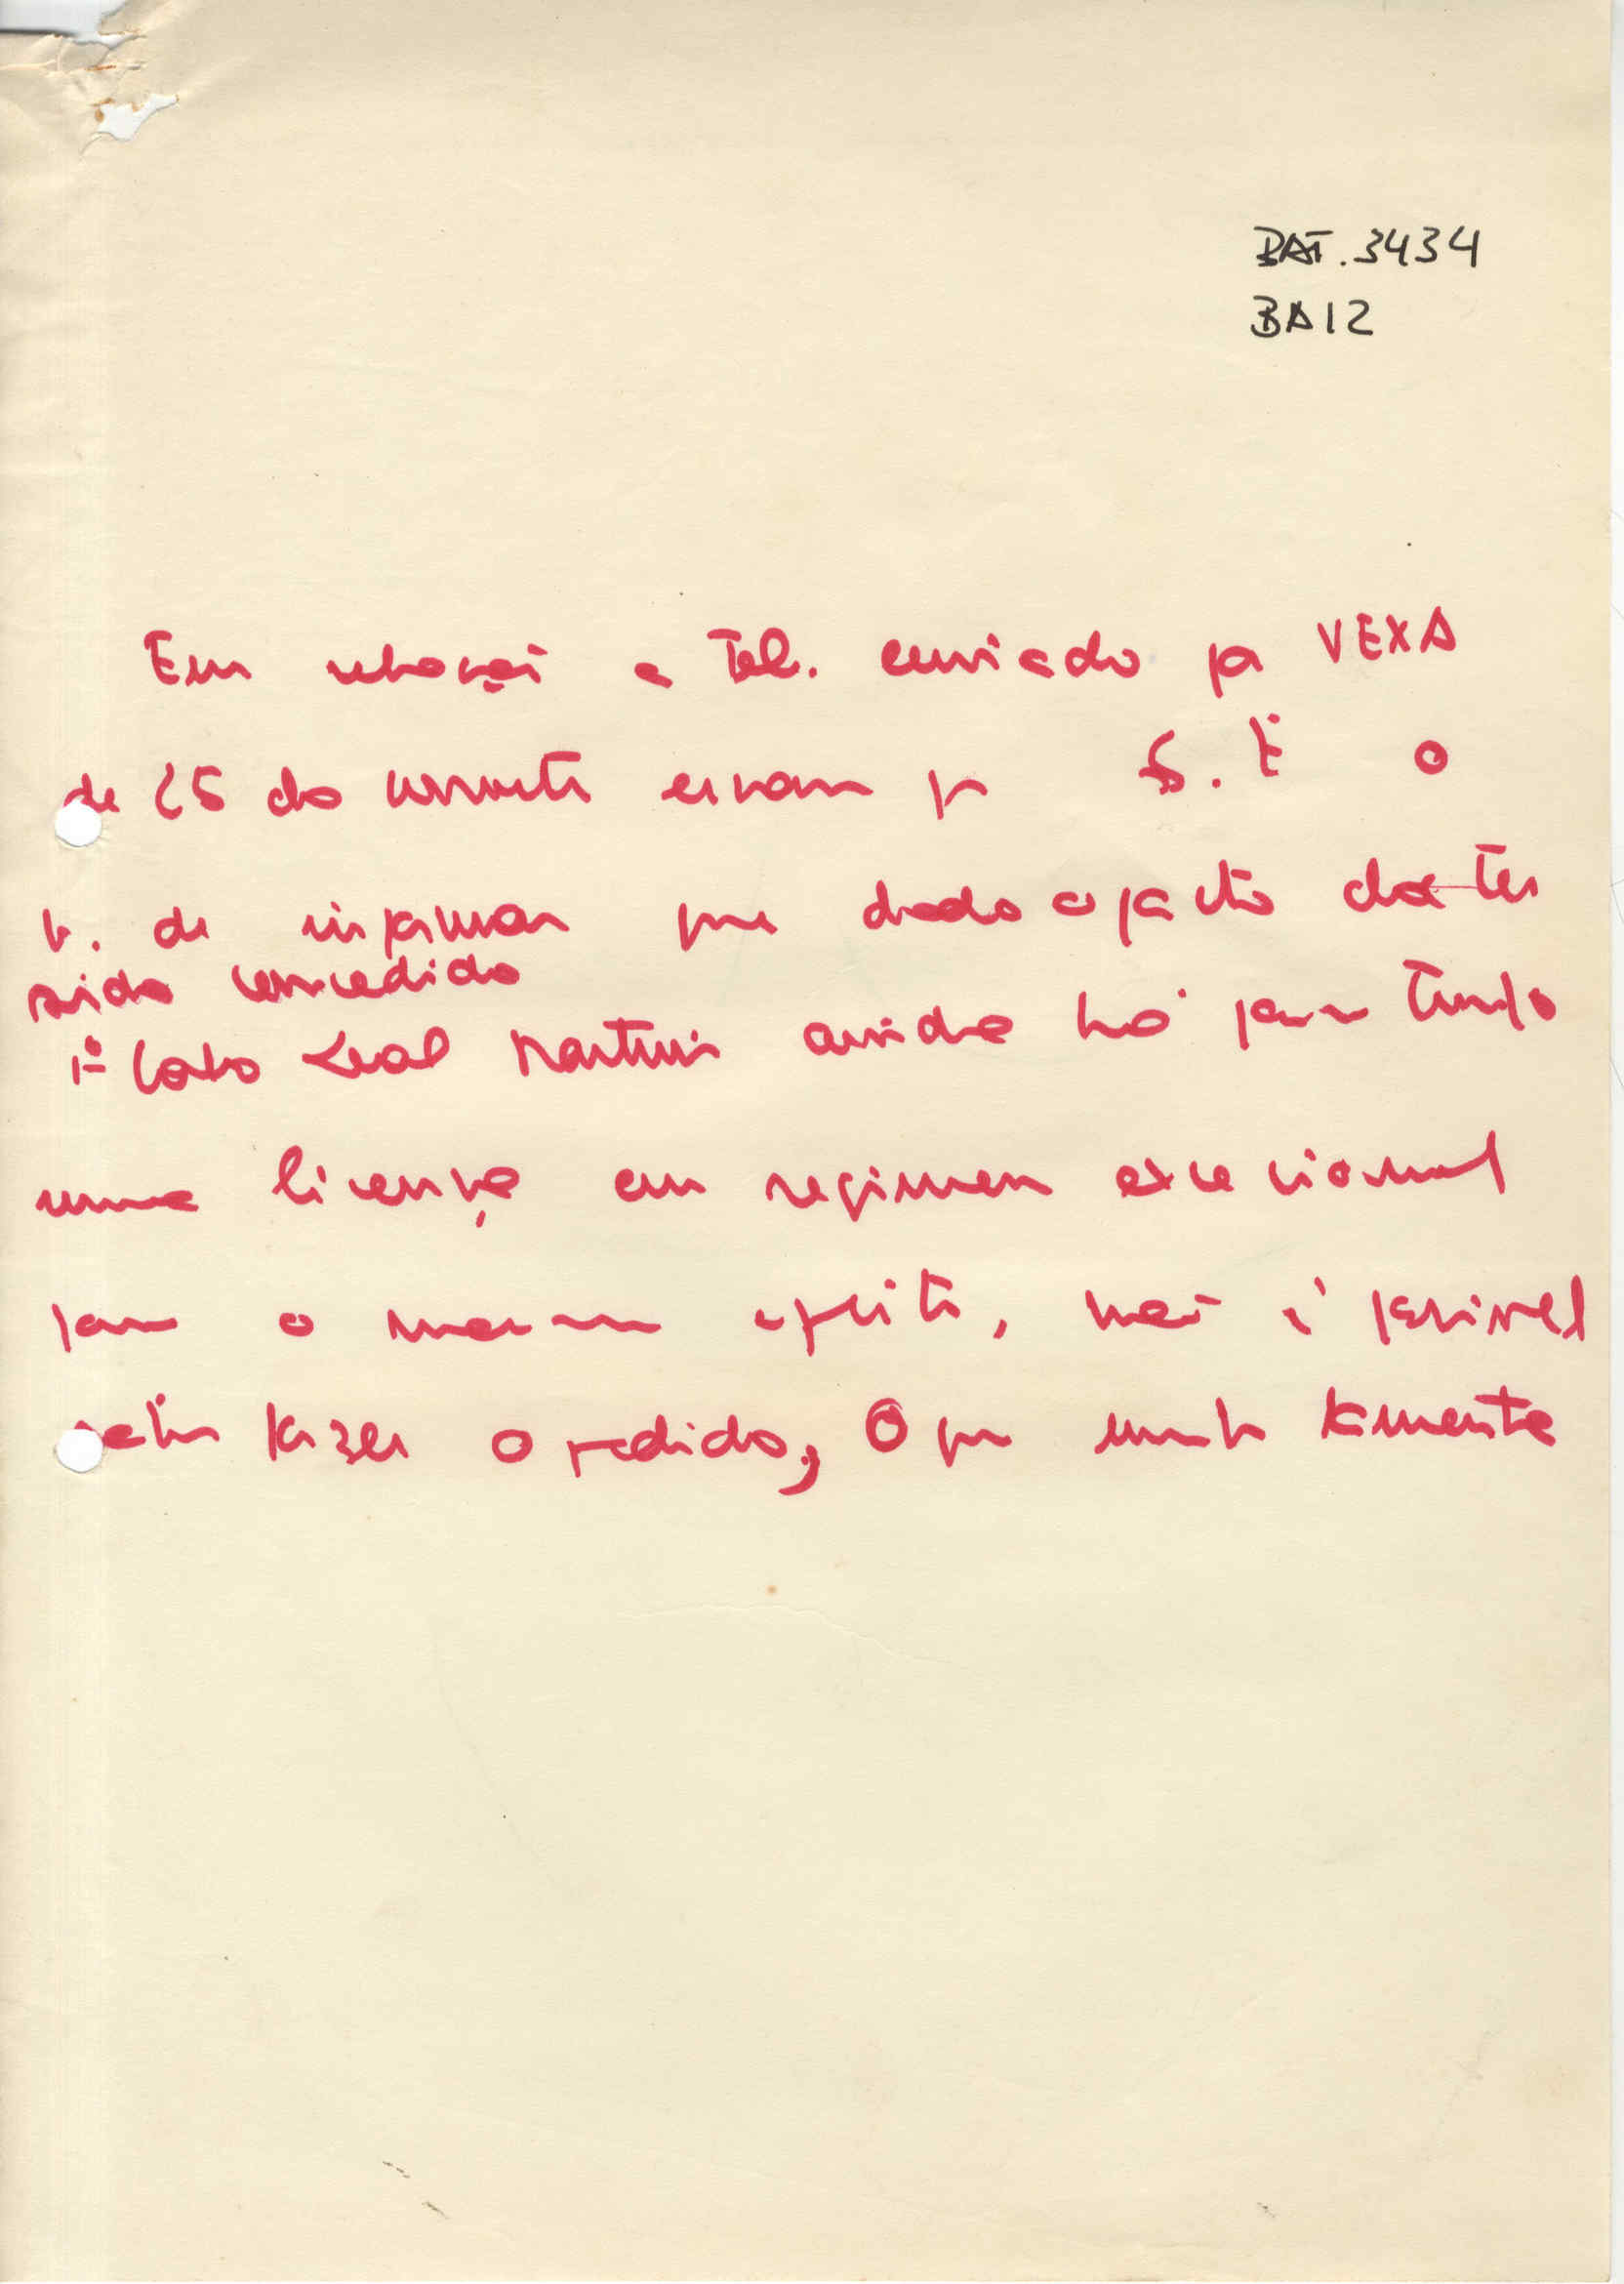 BAT. 3434
BA12
Em relação a Tel. enviado por VEXA
de 25 do corrente S. E o
de informar que dado o facto de ter
sido concedido
1º Cabo Leal Martins ainda há pouco tempo
uma licença em regimen excecional
para o mesmo efeito, não é possivel
satisfazer o pedido, O que